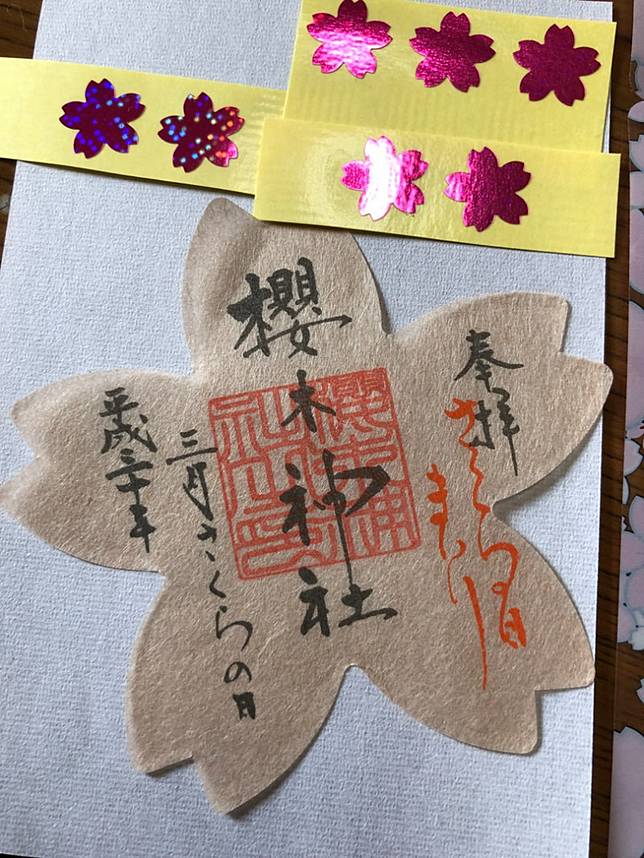 奉拝
さくらの日
まつり
櫻木神社
三月さくらの日
平成三十年